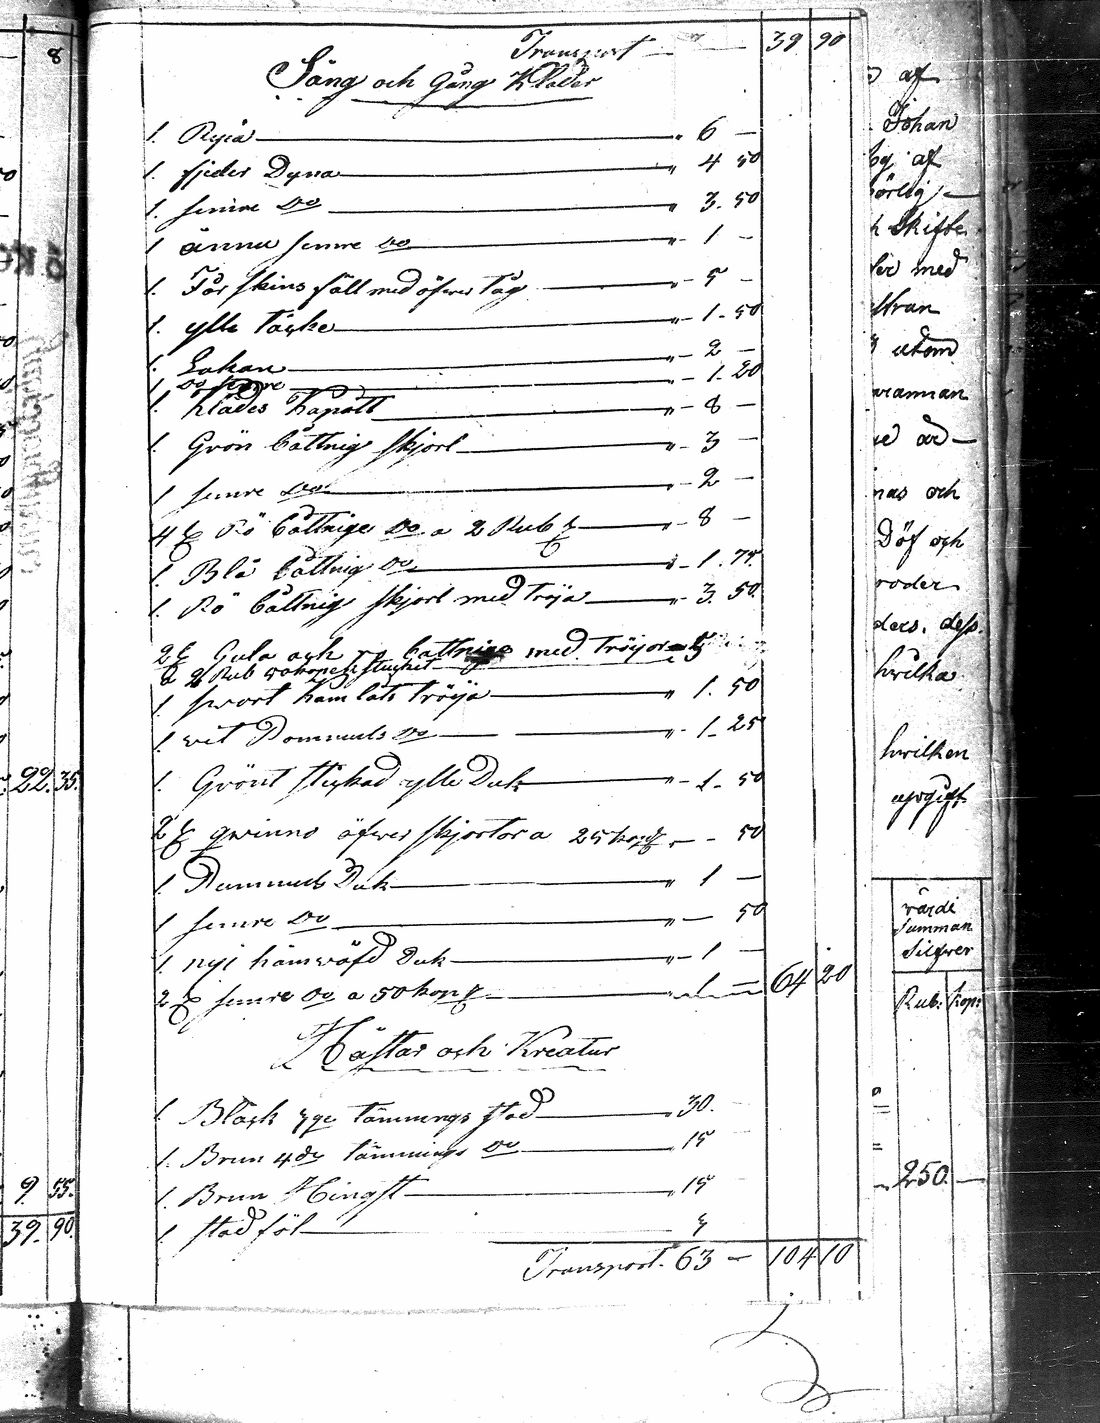 Transport 39 90
Säng och Gång Kläder
1. Ryia " 6 –
1. fjeder Dyna " 4 50
1. semre Do " 3. 50
1 ännu semre Do " 1 –
1. Får skins fäll med öfver tåg " 5 –
1. ylle täcke " 1. 50
1. Lakan " 2 –
1 Do semre " 1. 20
1. Klädes Kapott " 8 –
1. Grön Cattnig skjorl " 3 –
1 semre Do " 2 –
4 Rö Cattnige Do a 2 Rub " 8 –
1. Blå Cattnig Do " 1. 75.
1. Rö Cattnig skjorl med tröja " 3. 50.
2 Gula och Cattnige med tröjor 5
a 2 Rub stycket
1 swart kamlots tröja " 1. 50
1. wit Bommuls Do " 1. 25
1. Grönt stickad ylle Duk " 1. 50
2 qwinno öfwer skjortor a 25 kop – 50
1 Bummuls Duk " 1 –
1 semre Do " – 50
1. nyi hämwäfd Duk " 1 –
2 semre Do a 50 kop " 1 – 64 20
Hästar och Kreatur
1. Black tämnings stod 30.
1. Brun 4de tämnings Do " 15
1. Brun Hingst " 15
1 stod föl 3
Transport. 63 – 104 10
8
22. 35.
9. 55.
39. 90.
af
Johan
af
örlig
Skifte
med
utom
arannan
och
Döf och
roder
ders. dess.
hwilka
hwilken
afvgift
värdi
Summan
Silfwer
Rub: kop:
250. –